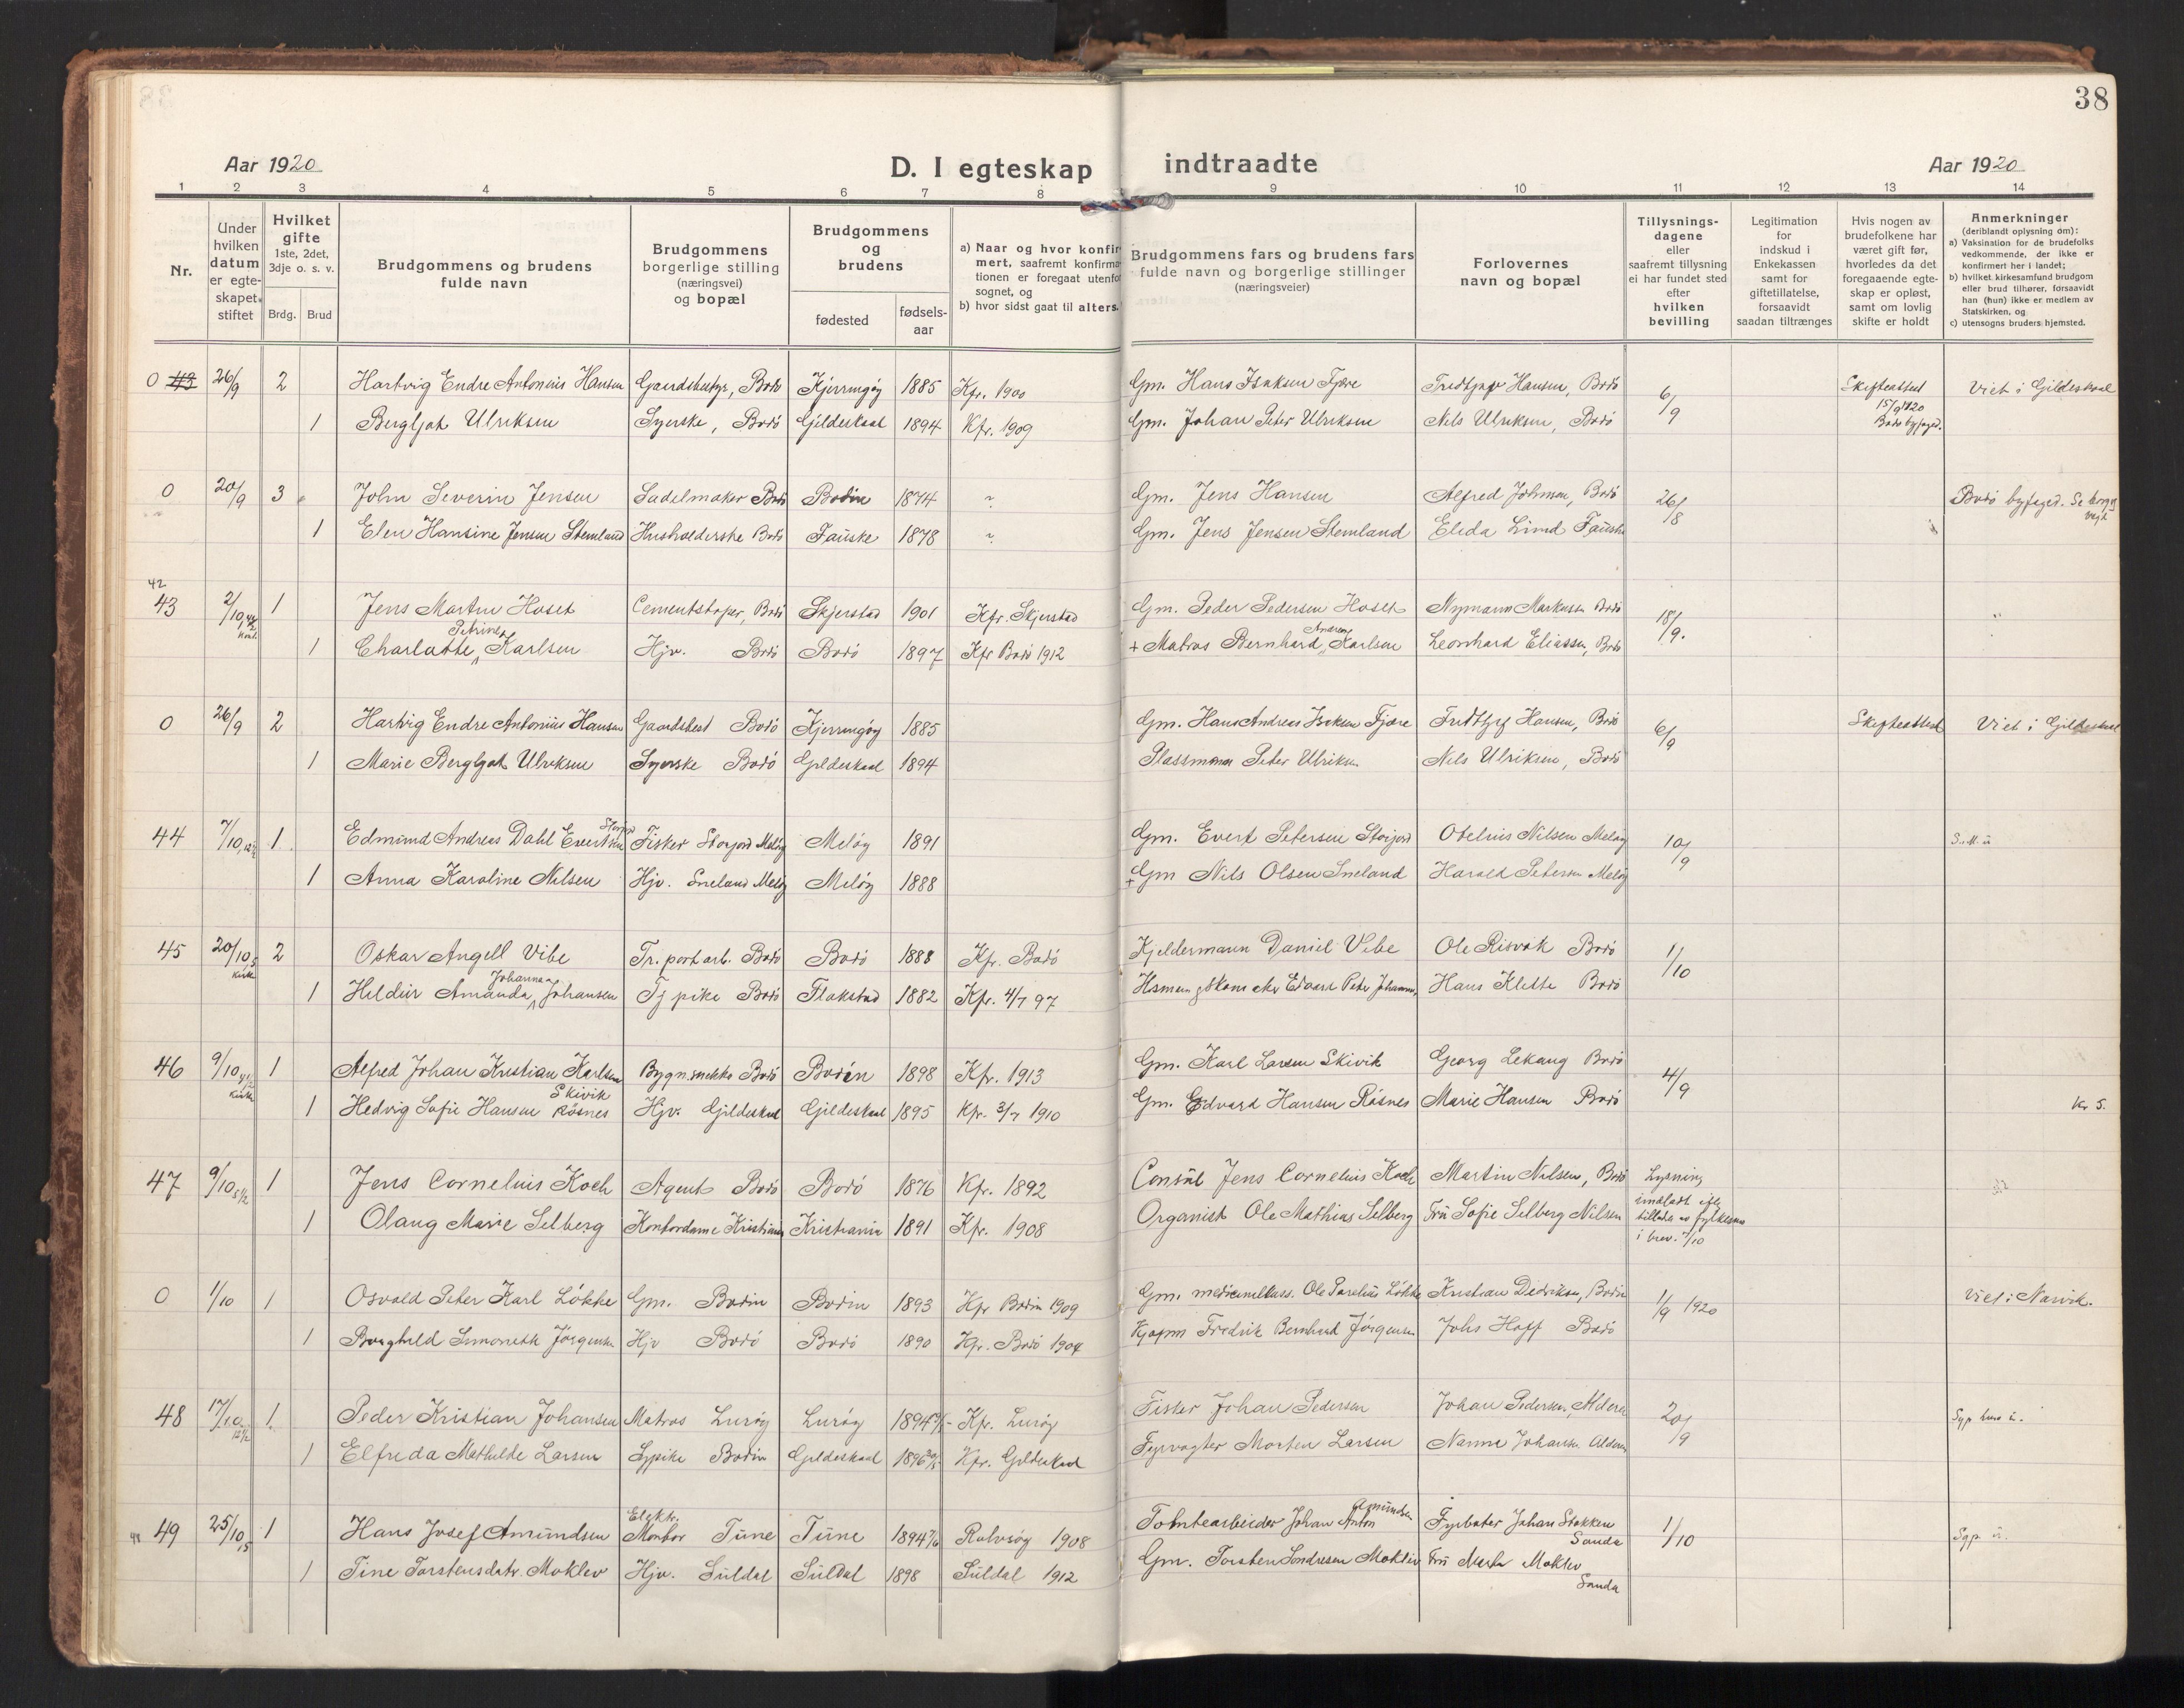 38
Aar 1920
D. I egteskap indtraadte
Aar 1920
1 2 3 4 5 6 7 8 9 10 11 12 13 14
Nr.
Under hvilken datum er egteskapet stiftet
Hvilket gifte 1ste, 2det, 3dje o. s. v.
Brdg. Brud
Brudgommens og brudens fulde navn
Brudgommens borgerlige stilling (næringsvei) og bopæl
Brudgommens og brudens
fødested
fødselsaar
a) Naar og hvor konfirmert, saafremt konfirmationen er foregaat utenfor sognet, og
b) hvor sidst gaat til alters.
Brudgommens fars og brudens fars fulde navn og borgerlige stillinger (næringsveier)
Forlovernes navn og bopæl
Tillysningsdagene eller saafremt tillysning ei har fundet sted efter hvilken bevilling
Legitimation for indskud i Enkekassen samt for giftetillatelse, forsaavidt saadan tiltrænges
Hvis nogen av brudefolkene har været gift før, hvorledes da det foregaaende egteskap er opløst, samt om lovlig skifte er holdt
Anmerkninger (deriblandt oplysning om):
a) Vaksination for de brudefolks vedkommende, der ikke er konfirmert her i landet;
b) hvilket kirkesamfund brudgom eller brud tilhører, forsaavidt han (hun) ikke er medlem av Statskirken, og
c) utensogns bruders hjemsted.
0 43 26/9 2 Hartvig Endre Antonius Hansen Gaardsbestyr, Bodö Kjerringöy 1885 Kfr. 1900 Gm. Hans Isaksen Fjære Fridtjof Hansen, Bodö 6/9 Skifteattest 15/9 1920 Bodö byfoged. Viet i Gildeskaal
1 Bergljot Ulriksen Syerske, Bodö Gildeskaal 1894 Kfr. 1909 Gm. Johan Peter Ulriksen Nils Ulriksen, Bodö
0 20/9 3 John Severin Jensen Sadelmaker Bodö Bodin 1874 Gm. Jens Hansen Alfred Johnsen, Bodö 26/8 Bodö byfoged. Se borgerl. vigt
1 Elen Hansine Jensen Stemland Husholderske Bodö Fauske 1878 Gm. Jens Jensen Stemland Elida Lind Fauske
42
43 2/10 1 Jens Martin Hoset Cementstøper, Bodö Skjerstad 1901 Kfr. Skjerstad Gm. Peder Pedersen Hoset Nymann Markussen Bodö 18/9.
1 Charlotte Petrine Karlsen Hjv. Bodö Bodö 1897 Kfr Bodö 1912 + Matros Bernhard Andreas Karlsen Leonhard Eliassen, Bodö
0 26/9 2 Hartvig Endre Antonius Hansen Gaardsbest Bodö Kjerringöy 1885 Gm. Hans Andreas Isaksen Fjære Fridtjof Hansen, Bodö 6/9 Skifteattest Viet i Gildeskaal
1 Marie Bergljot Ulriksen Syerske Bodö Gildeskaal 1894 Plassmann Peter Ulriksen Nils Ulriksen, Bodö
44 7/10 1 Edmund Andreas Dahl Evertsen Storjord Fisker Storjord Melöy Melöy 1891 Gm. Evert Petersen Storjord Otelius Nilsen Melöy 10/9 S.M. u
1 Anna Karoline Nilsen Hjv. Sneland Melöy Melöy 1888 + Gm Nils Olsen Sneland Harald Petersen Melöy
45 20/10 5 kirke 2 Oskar Angell Vibe Tr. port arb. Bodö Bodö 1888 Kfr. Bodö Kjeldermann Daniel Vibe Ole Risvik Bodö 1/10
1 Hildur Amanda Johanna Johansen Tj pike Bodö Flakstad 1882 Kfr. 4/7 97 Edvard Peter Johansen Hans Klette Bodö
46 9/10 4 1/2 kirke 1 Alfred Johan Kristian Karlsen Skivik Bygn.snekker Bodö Bodin 1898 Kfr. 1913 Gm. Karl Larsen Skivik Georg Lekang Bodö 4/9
1 Hedvig Sofie Hansen Rösnes Hjv. Gildeskaal Gildeskaal 1895 Kfr. 3/7 1910 Gm. Edvard Hansen Rösnes Marie Hansen Bodö Kr 5.
47 9/10 5 1/2 1 Jens Cornelius Koch Agent Bodö Bodö 1876 Kfr. 1892 Consul Jens Cornelius Koch Martin Nilsen, Bodö Lysning undladt efter tilladelse av fylkesm i brev. 7/10
1 Olaug Marie Selberg Kontordame Kristiania Kristiania 1891 Kfr. 1908 Organist Ole Mathias Selberg Fru Sofie Selberg Nilsen
0 1/10 1 Osvald Peter Karl Lökke Gm. Bodin Bodin 1893 Kfr Bodin 1909 Gm. Ole Parelius Lökke Kristian Didriksen, Bodin 1/9 1920 Viet i Narvik.
1 Borghild Simonette Jörgensen Hjv Bodö Bodö 1890 Kfr. Bodö 1904 Kjøpm Fredrik Bernhard Jörgensen Johs Hoff Bodö
48 17/10 12 1/2 1 Peder Kristian Johansen Matros Luröy Luröy 1894 Kfr. Luröy Fisker Johan Pedersen Johan Pedersen, Alderen 20/9
1 Elfrida Mathilde Larsen Sypike Bodin Gildeskaal 1896 Kfr. Gildeskaal Fyrvogter Morten Larsen Nanna Johansen Alderen
49 25/10 5 1 Hans Josef Amundsen Elektr. Montör Tune Tune 1894 Rolvsöy 1908 Tomtearbeider Johan Anton Amundsen Fyrböter Johan Stokken Sauda 1/10
1 Tine Torstensdatr. Moklev Hjv. Suldal Suldal 1898 Suldal 1912 Gm. Torsten Sondresen Moklev Fru Marta Moklev Sauda